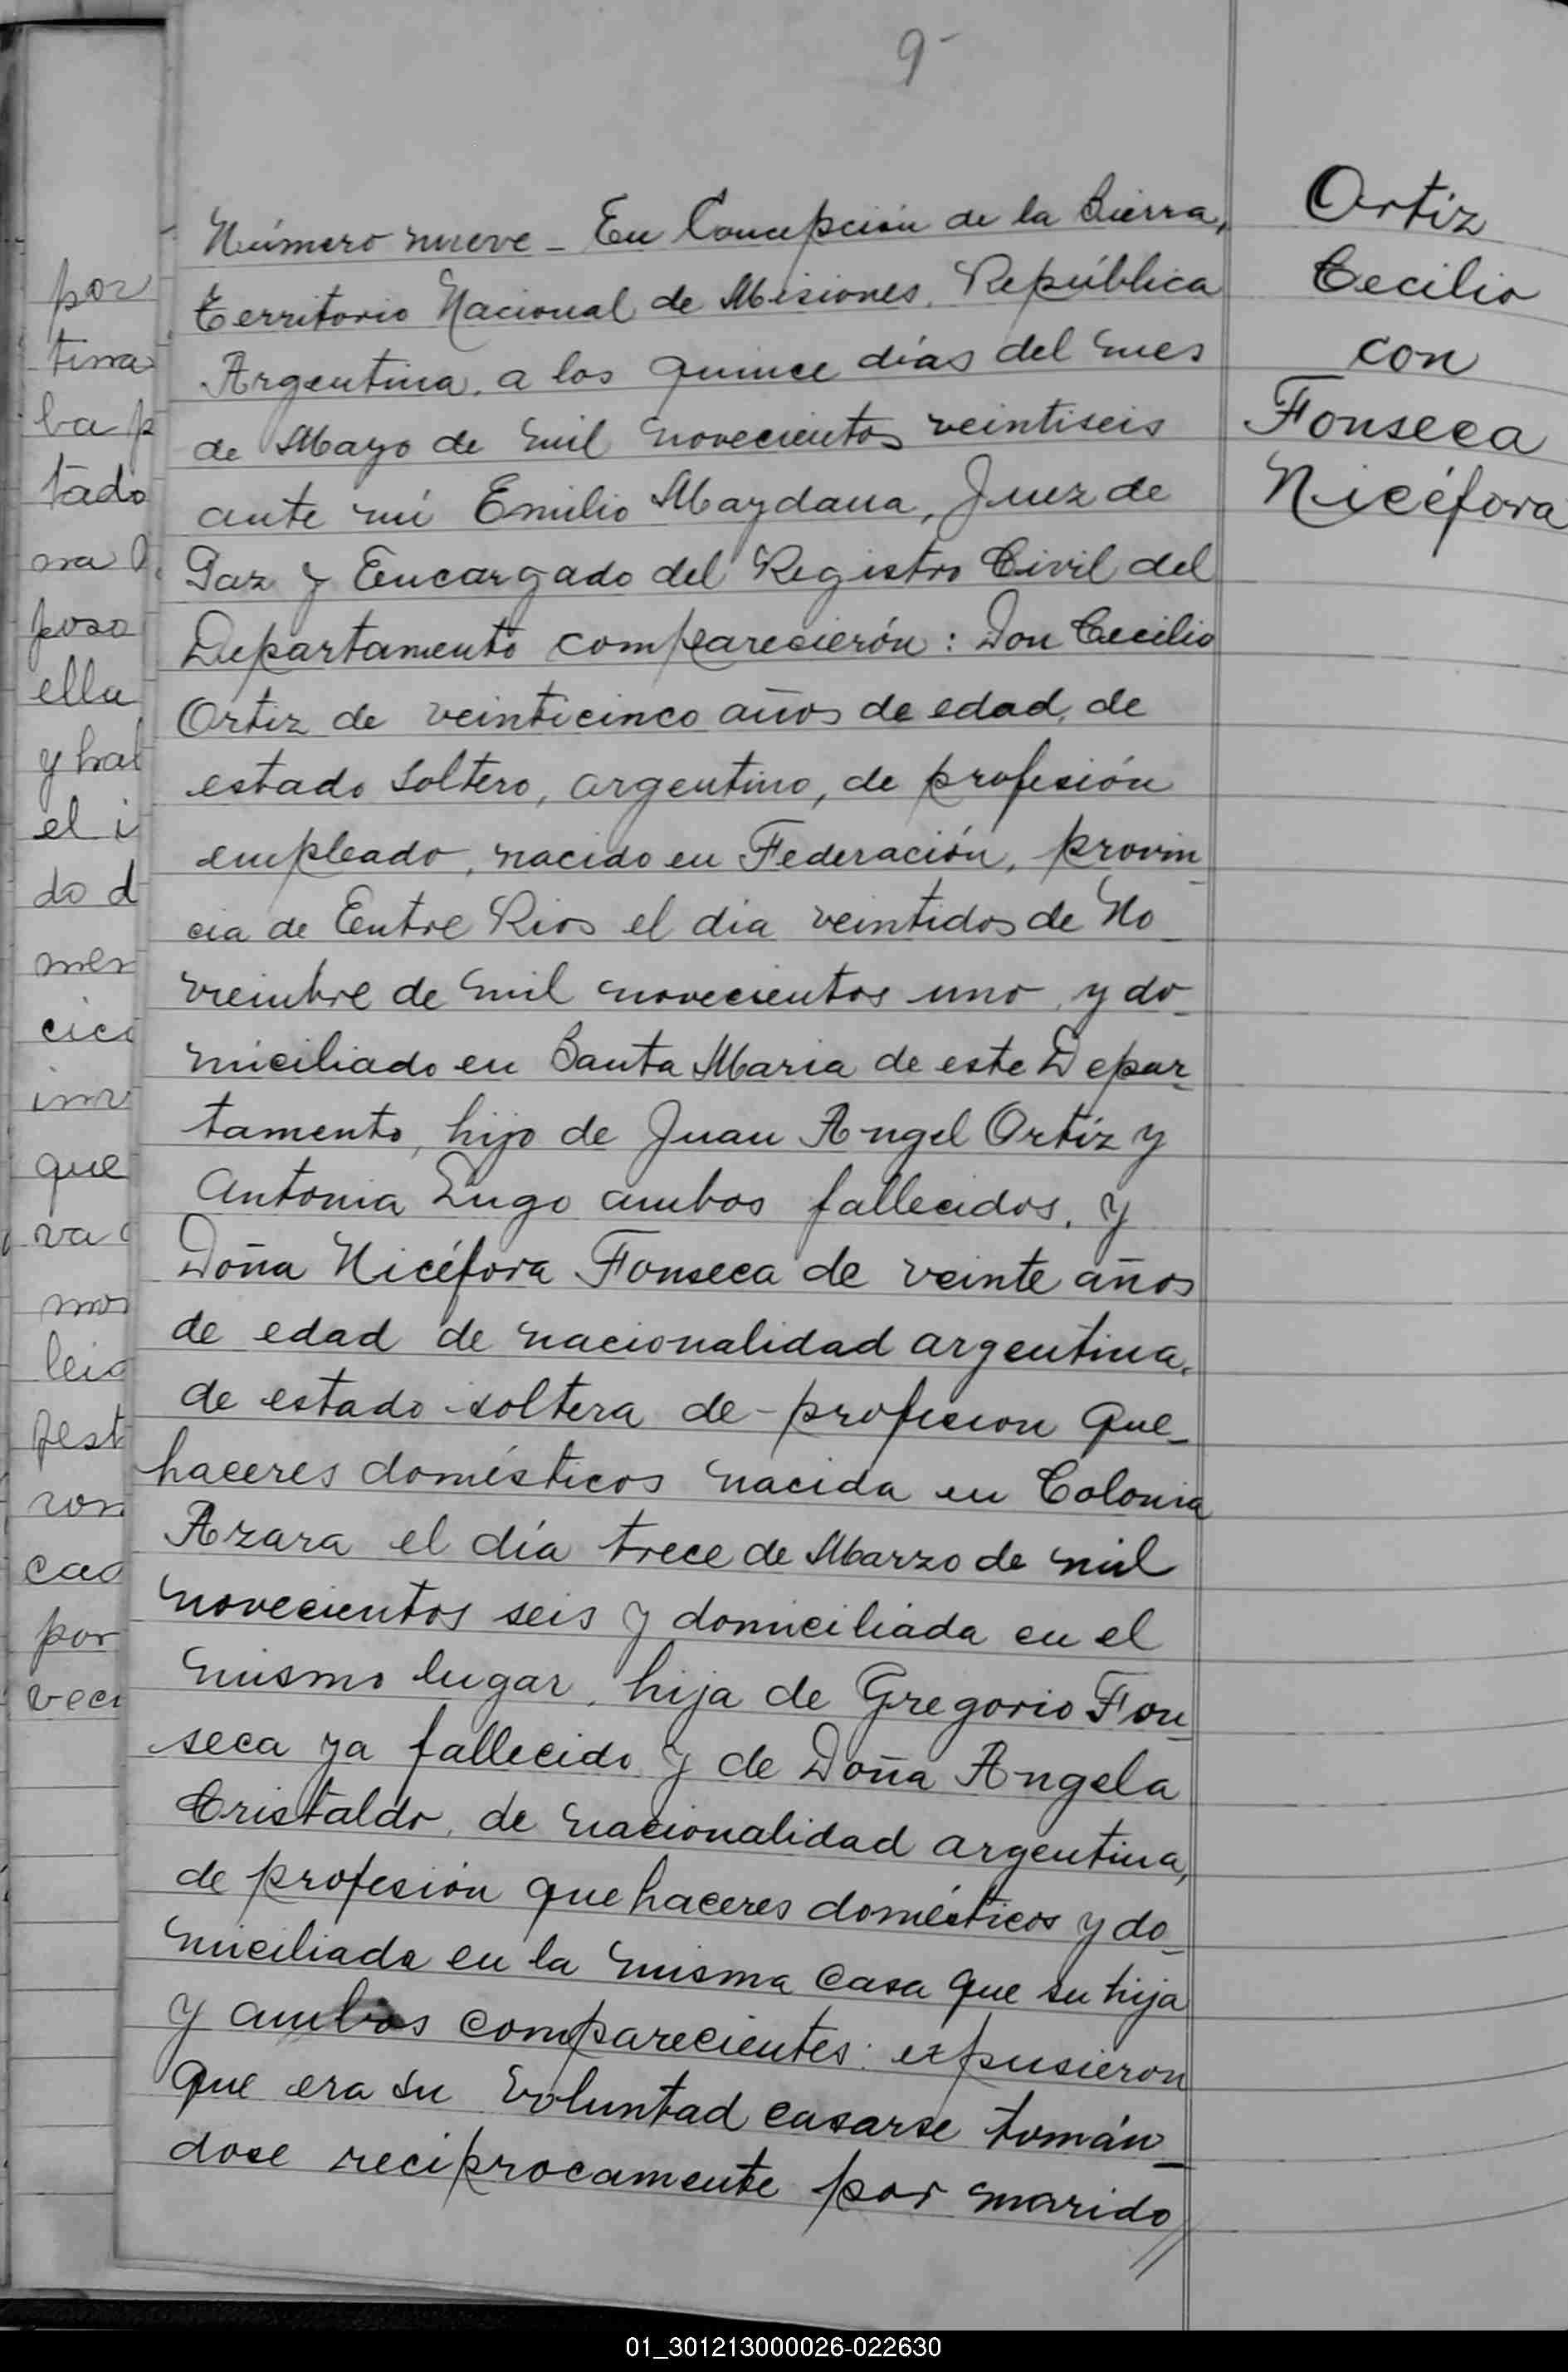 9-
Número nueve - En Concepción de la Sierra,
Territorio Nacional de Misiones, República
Argentina, a los quince días del mes
de Mayo de mil novecientos veintiseis
ante mí Emilio Maydana, Juez de
Paz y Encargado del Registro Civil del
Departamento comparecierón: Don Cecilio
Ortiz de veinticinco años de edad, de
estado soltero, argentino, de profesión
empleado, nacido en Federación, provin
cia de Entre Rios el dia veintidos de No
viembre de mil novecientos uno, y do
miciliado en Santa Maria de este Depar
tamento, hijo de Juan Angel Ortíz y
Antonia Lugo ambos fallecidos, y
Doña Nicéfora Fonseca de veinte años
de edad de nacionalidad argentina,
de estado soltera de profesion que
haceres domésticos nacida en Colonia
Azara el día trece de Marzo de mil
novecientos seis y domiciliada en el
mismo lugar, hija de Gregorio Fon
seca ya fallecido y de Doña Angela
Cristaldo, de nacionalidad argentina,
de profesión que haceres domésticos y do
miciliada en la misma casa que su hija
y ambos comparecientes: expusieron
que era su voluntad casarse tomán
dose reciprocamente por marido
Ortiz
Cecilio
con
Fonseca
Nicéfora
por
tina
ba p
tado
na
poso
ella
y hal
el i
do d
men
cici
inv
que
va
mos
leid
Test
ron
cad
por
veci
01_301213000026-022630